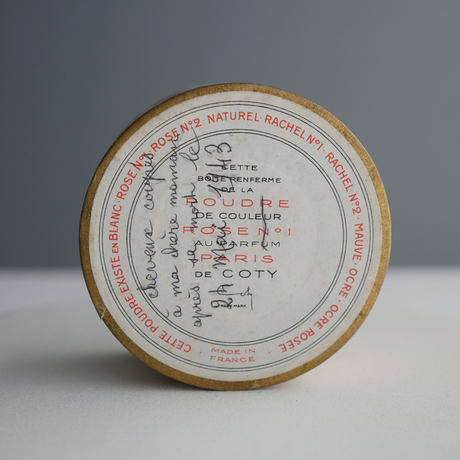 CETTE POUDRE EXISTE EN BLANC · ROSE Nº1 · ROSE Nº2 · NATUREL · RACHEL Nº1 · RACHEL Nº2 · MAUVE · OCRE · OCRE ROSÉE
CETTE
BOITE RENFERME
DE LA
POUDRE
DE COULEUR
ROSE Nº1
AU PARFUM
PARIS
DE COTY
MADE IN
FRANCE
cheveux coupés
à ma chère maman
après sa mort le
24 Mai 1943